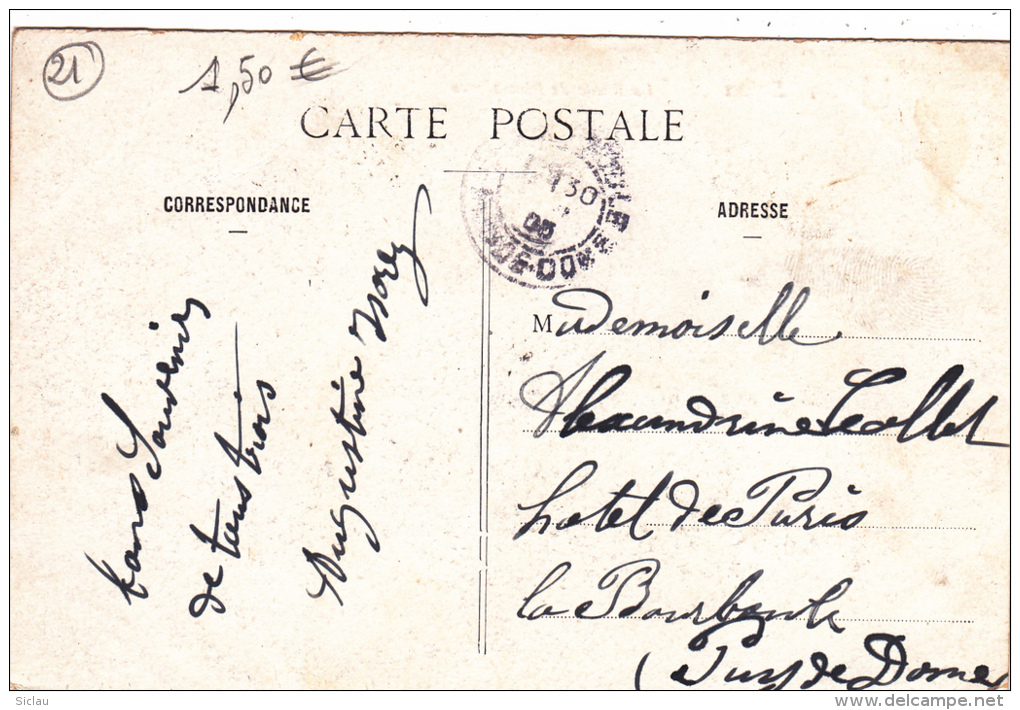 21
1,50 €
CARTE POSTALE
CORRESPONDANCE
ADRESSE
bons Souvenirs
de tous trois
Augustine
130
08
Mademoiselle
Alexandrine
hotel de Paris
la Bourboule
(Puy de Dome
Siclau
www.delcampe.net